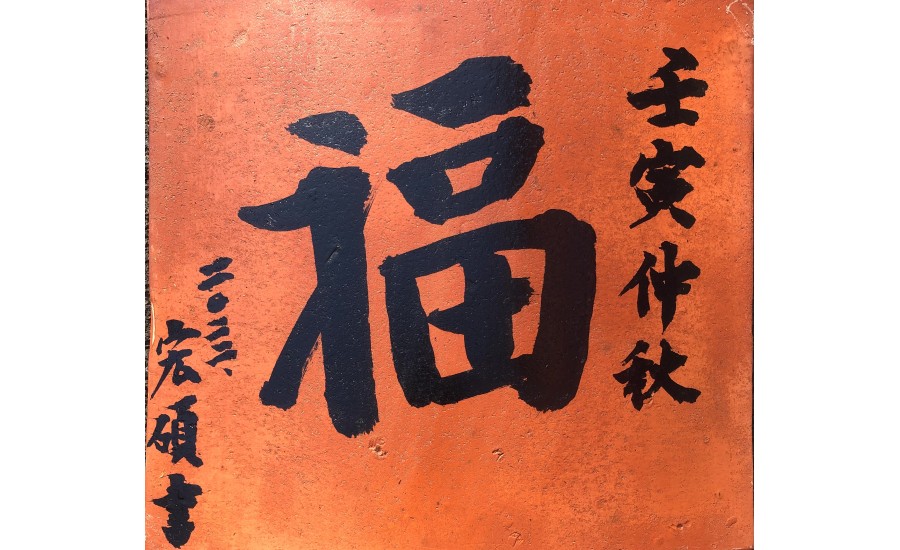 壬寅仲秋
福
二〇二二
宏碩書